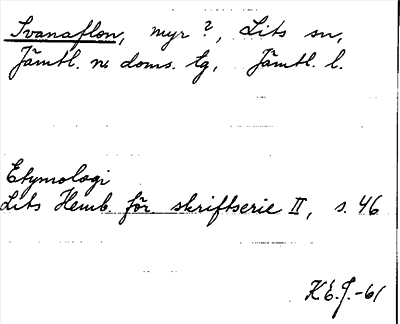 Svanaflon, myr?, Lits sn,
Jämtl. n. doms. lg, Jämtl. l.
Etymologi
Lits Hemb. för skriftserie II, s. 46
K.E.J.-61